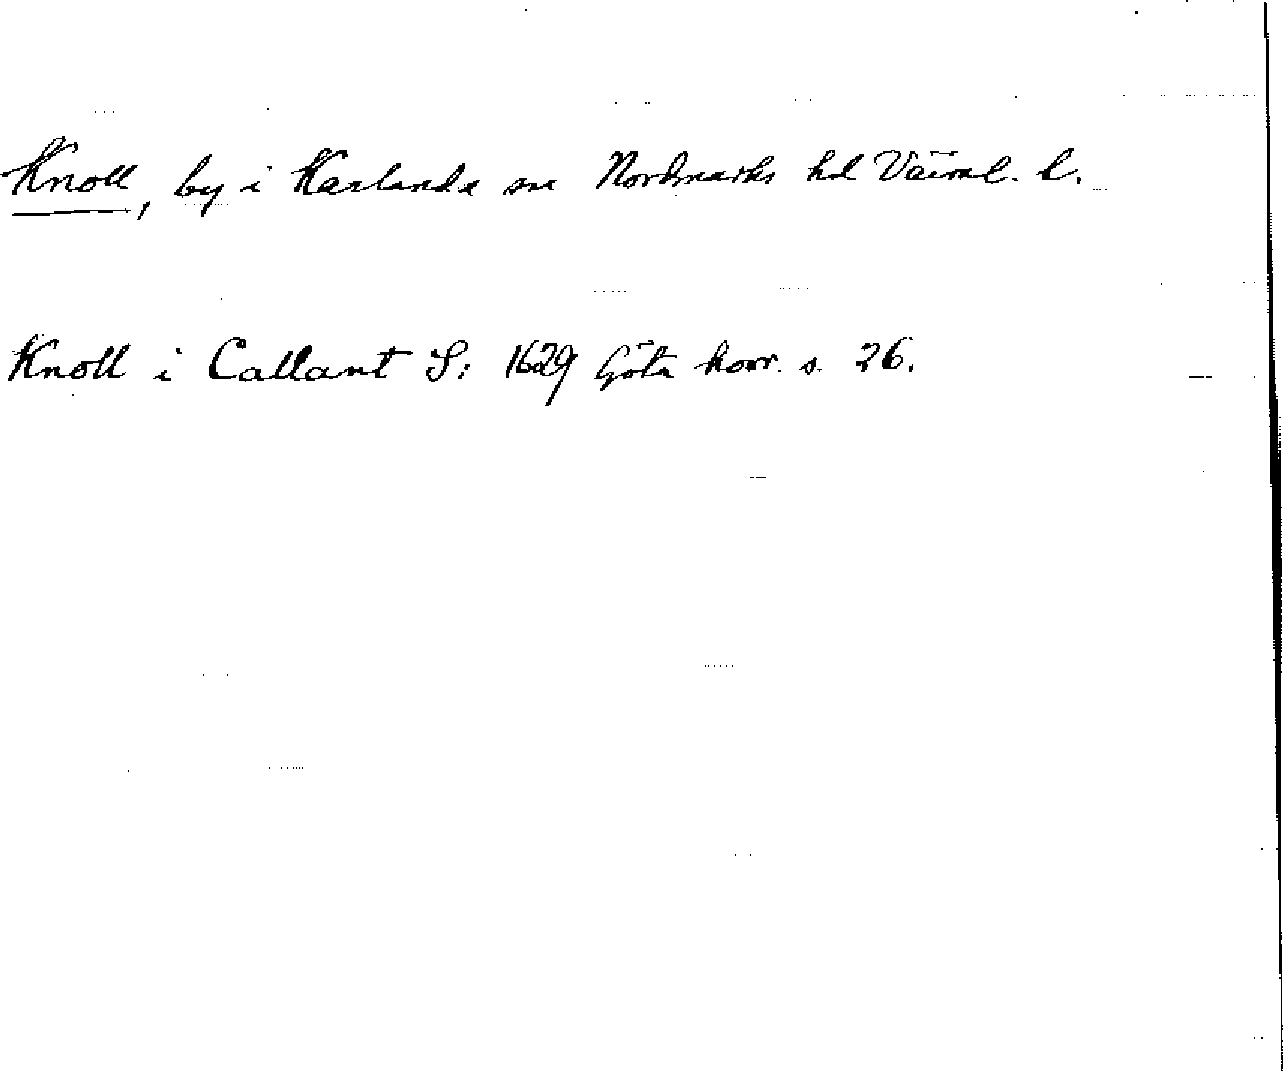 Knoll, by i Karlanda sn Nordmarks hd Värml. l.
Knoll i Callant S: 1629 Göta hovr. s. 26.